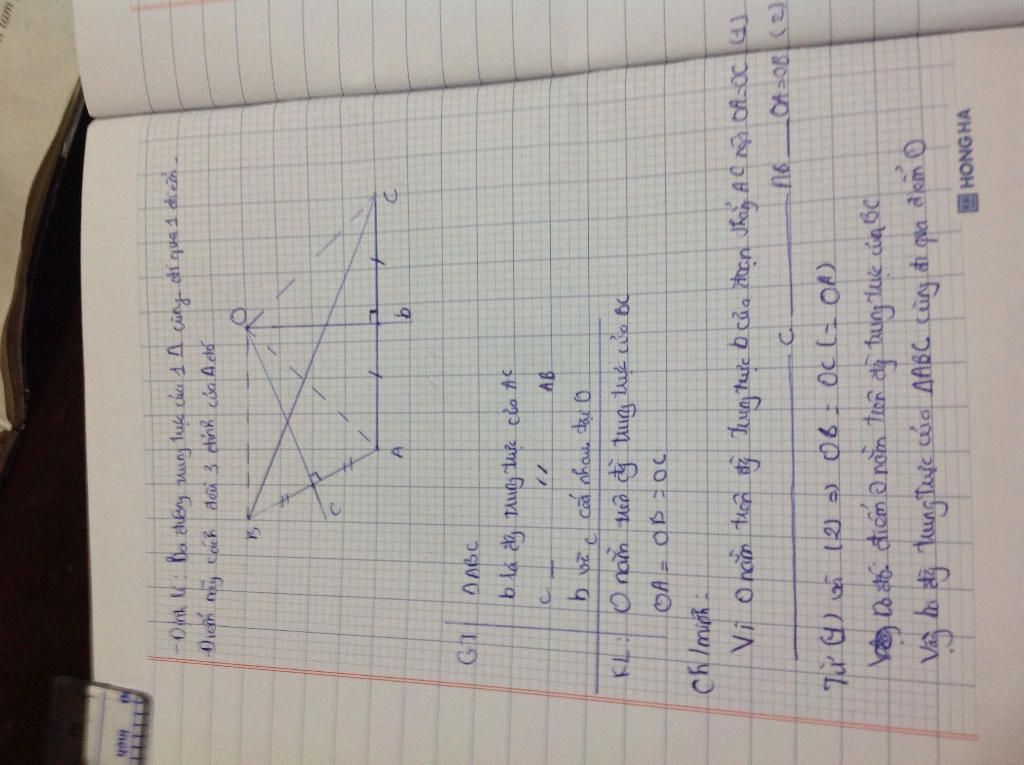 - Định lí: Ba đường trung trực của 1 Δ cùng đi qua 1 điểm.
Điểm này cách đều 3 đỉnh của Δ đó
B
O
C
A
b
C
GT
ΔABC
b là đg trung trực của AC
c — // AB
b và c cắt nhau tại O
KL: O nằm trên đg trung trực của BC
OA = OB = OC
Ch/minh:
Vì O nằm trên đg trung trực b của đoạn thẳng AC nên OA = OC (1)
c AB OA = OB (2)
Từ (1) và (2) => OB = OC (= OA)
Do đó điểm O nằm trên đg trung trực của BC
Vậy ba đg trung trực của ΔABC cùng đi qua điểm O
HONG HA